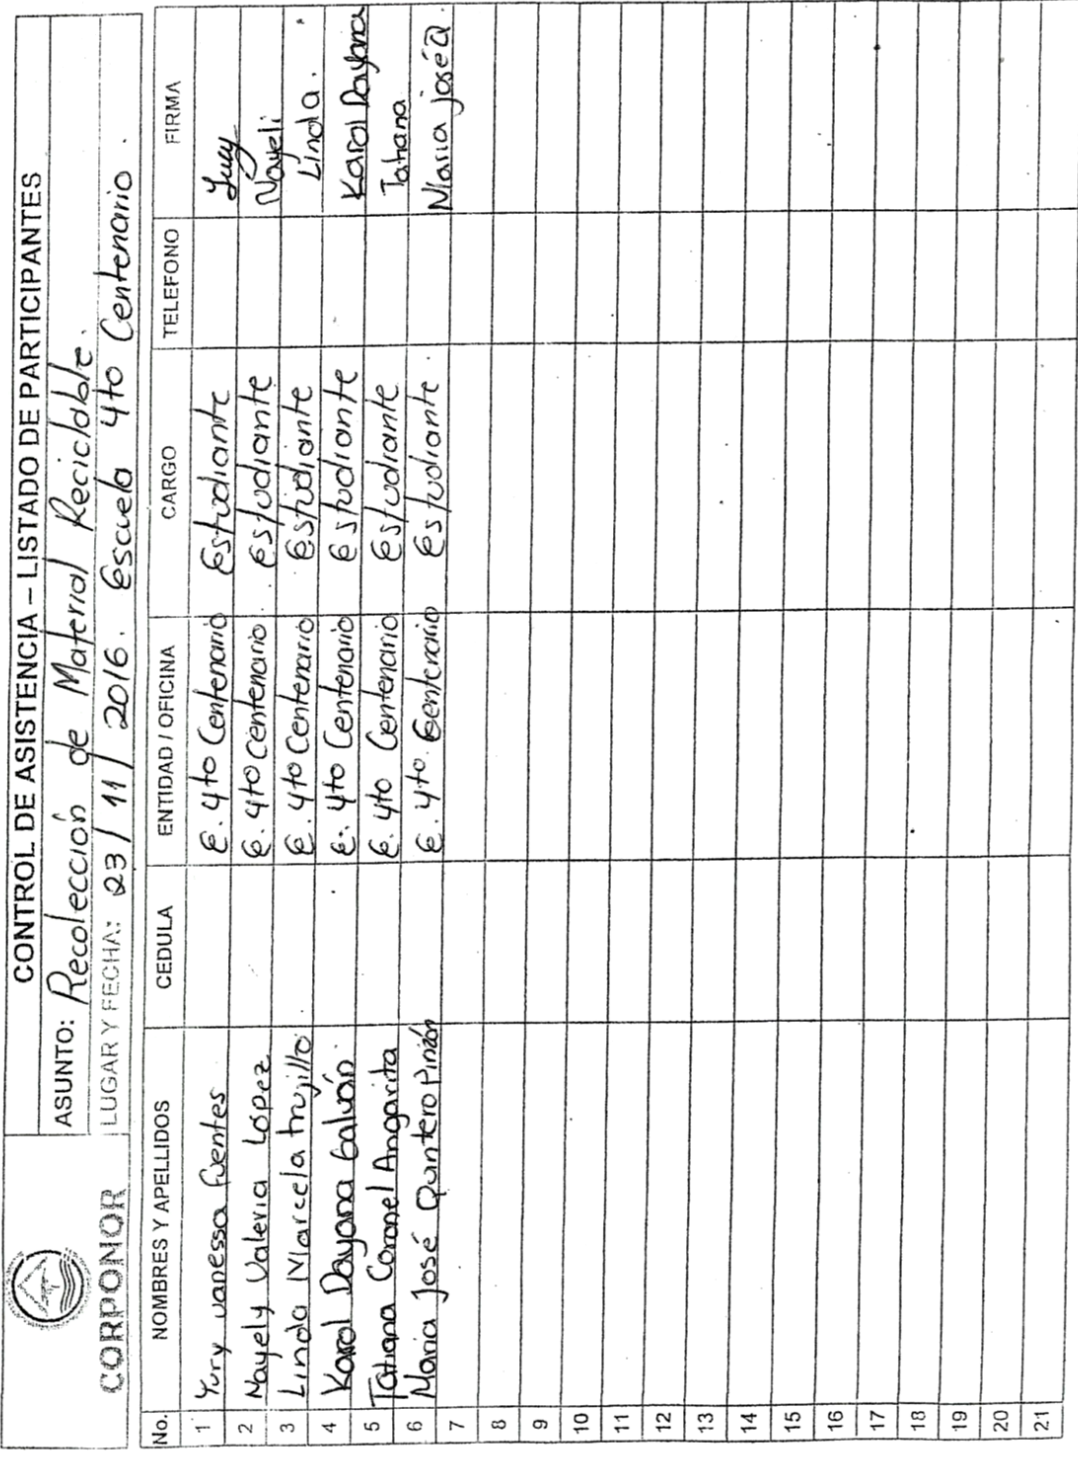 CORPONOR
CONTROL DE ASISTENCIA – LISTADO DE PARTICIPANTES
ASUNTO: Recolección de Material Reciclable.
LUGAR Y FECHA: 23/11/2016. Escuela 4to Centenario.
No. NOMBRES Y APELLIDOS CEDULA ENTIDAD / OFICINA CARGO TELEFONO FIRMA
1 Yury vanessa fuentes E. 4to Centenario Estudiante Yury
2 Nayely Valeria López E. 4to Centenario. Estudiante Nayeli
3 Linda Marcela trujillo. E. 4to Centenario Estudiante Linda.
4 Karol Dayana Galván. E. 4to Centenario Estudiante Karol Dayana
5 Tatiana Coronel Angarita E. 4to Centenario Estudiante Tatiana
6 Maria José Quintero Pinzón E. 4to. Centenario Estudiante. Maria josé Q.
7
8
9
10
11
12
13
14
15
16
17
18
19
20
21